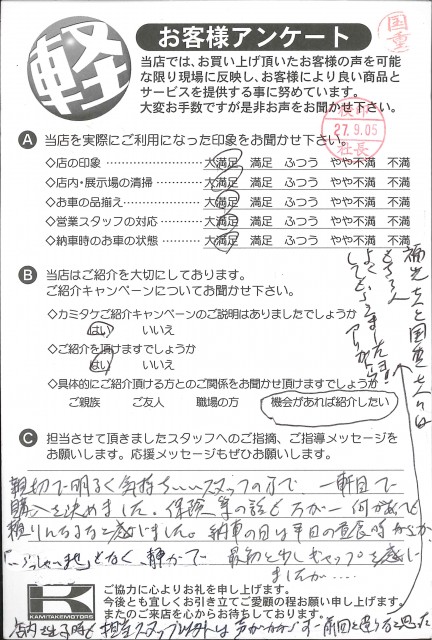 軽
お客様アンケート
国重
当店では、お買い上げ頂いたお客様の声を可能
な限り現場に反映し、お客様により良い商品と
サービスを提供する事に努めています。
大変お手数ですが是非お声をお聞かせ下さい。
27.9.05
社長
A 当店を実際にご利用になった印象をお聞かせ下さい。
◇店の印象 大満足 満足 ふつう やや不満 不満
◇店内・展示場の清掃 大満足 満足 ふつう やや不満 不満
◇お車の品揃え 大満足 満足 ふつう やや不満 不満
◇営業スタッフの対応 大満足 満足 ふつう やや不満 不満
◇納車時のお車の状態 大満足 満足 ふつう やや不満 不満
B 当店はご紹介を大切にしております。
ご紹介キャンペーンについてお聞かせ下さい。
◇カミタケご紹介キャンペーンのご説明はありましたでしょうか
はい いいえ
◇ご紹介を頂けますでしょうか
はい いいえ
◇具体的にご紹介頂ける方とのご関係をお聞かせ頂けますでしょうか
ご親族 ご友人 職場の方 機会があれば紹介したい
C 担当させて頂きましたスタッフへのご指摘、ご指導メッセージを
お願いします。応援メッセージもぜひお願いします。
親切で明るく気持ちいいスタッフの方で 一軒目で
購入を決めました。保険等の話も万が一何があっても
頼りになると感じました。納車の日は平日の昼食時だったからか
"いらっしゃいませ"となく、静かで 最初と少しギャップを感じ
ましたが....
KAMITAKEMOTORS
ご協力に心よりお礼を申し上げます。
今後とも宜しくお引き立てご愛顧の程お願い申し上げます。
またのご来店を心からお待ちしております。
店内 時も 担当スタッフ以外は声がかからず前回と違うと思った